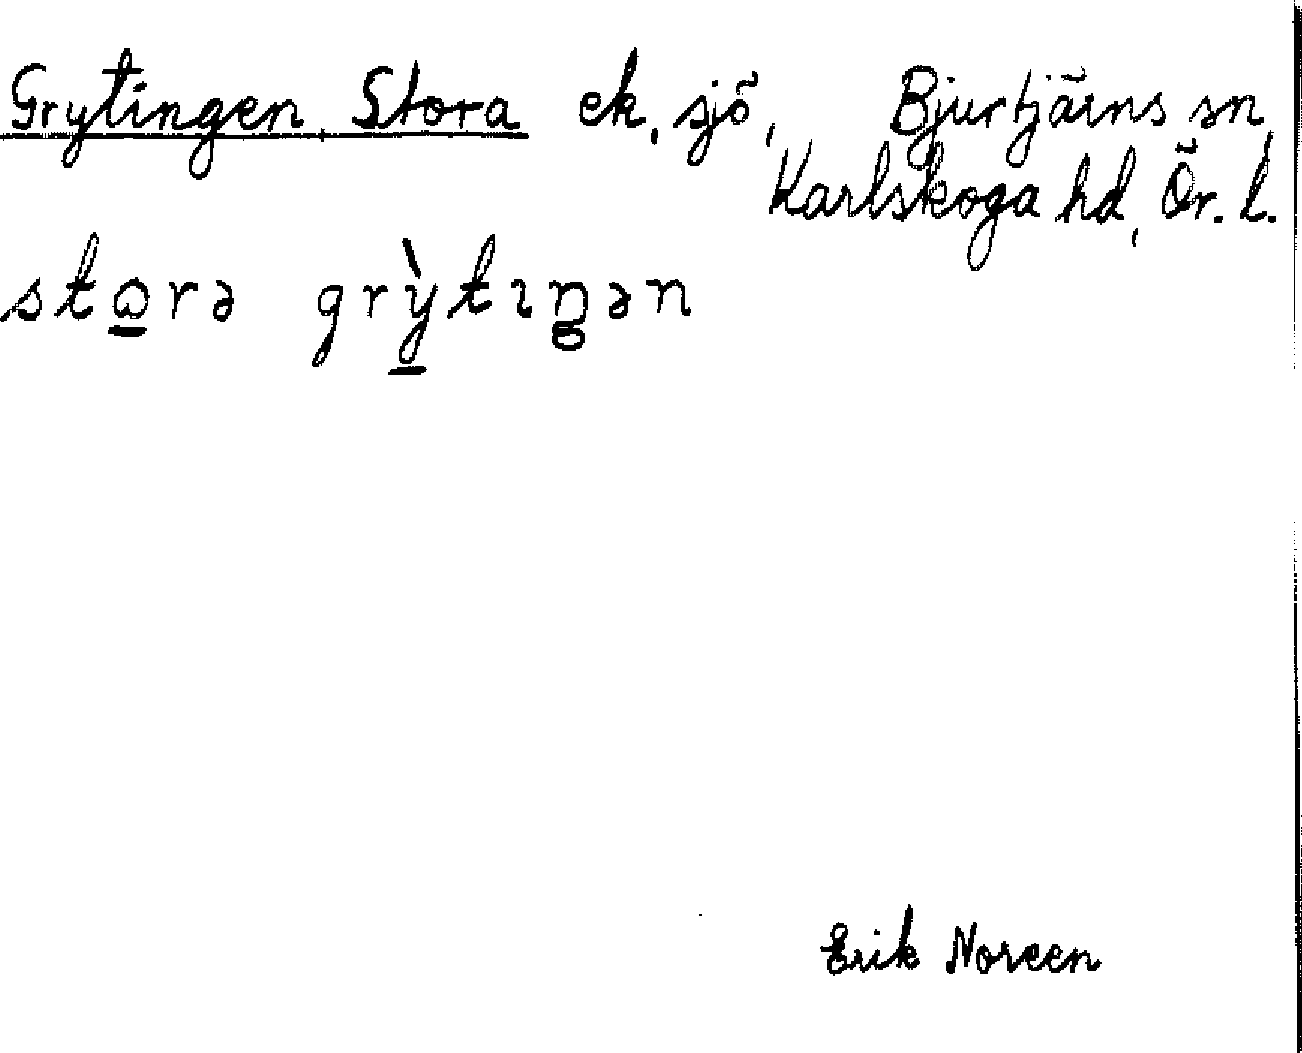 Grytingen Stora ek, sjö, Bjurtjärns sn,
Karlskoga hd, Ör. l.
stɷ̲rə grỳ̲tıŋən
Erik Noreen